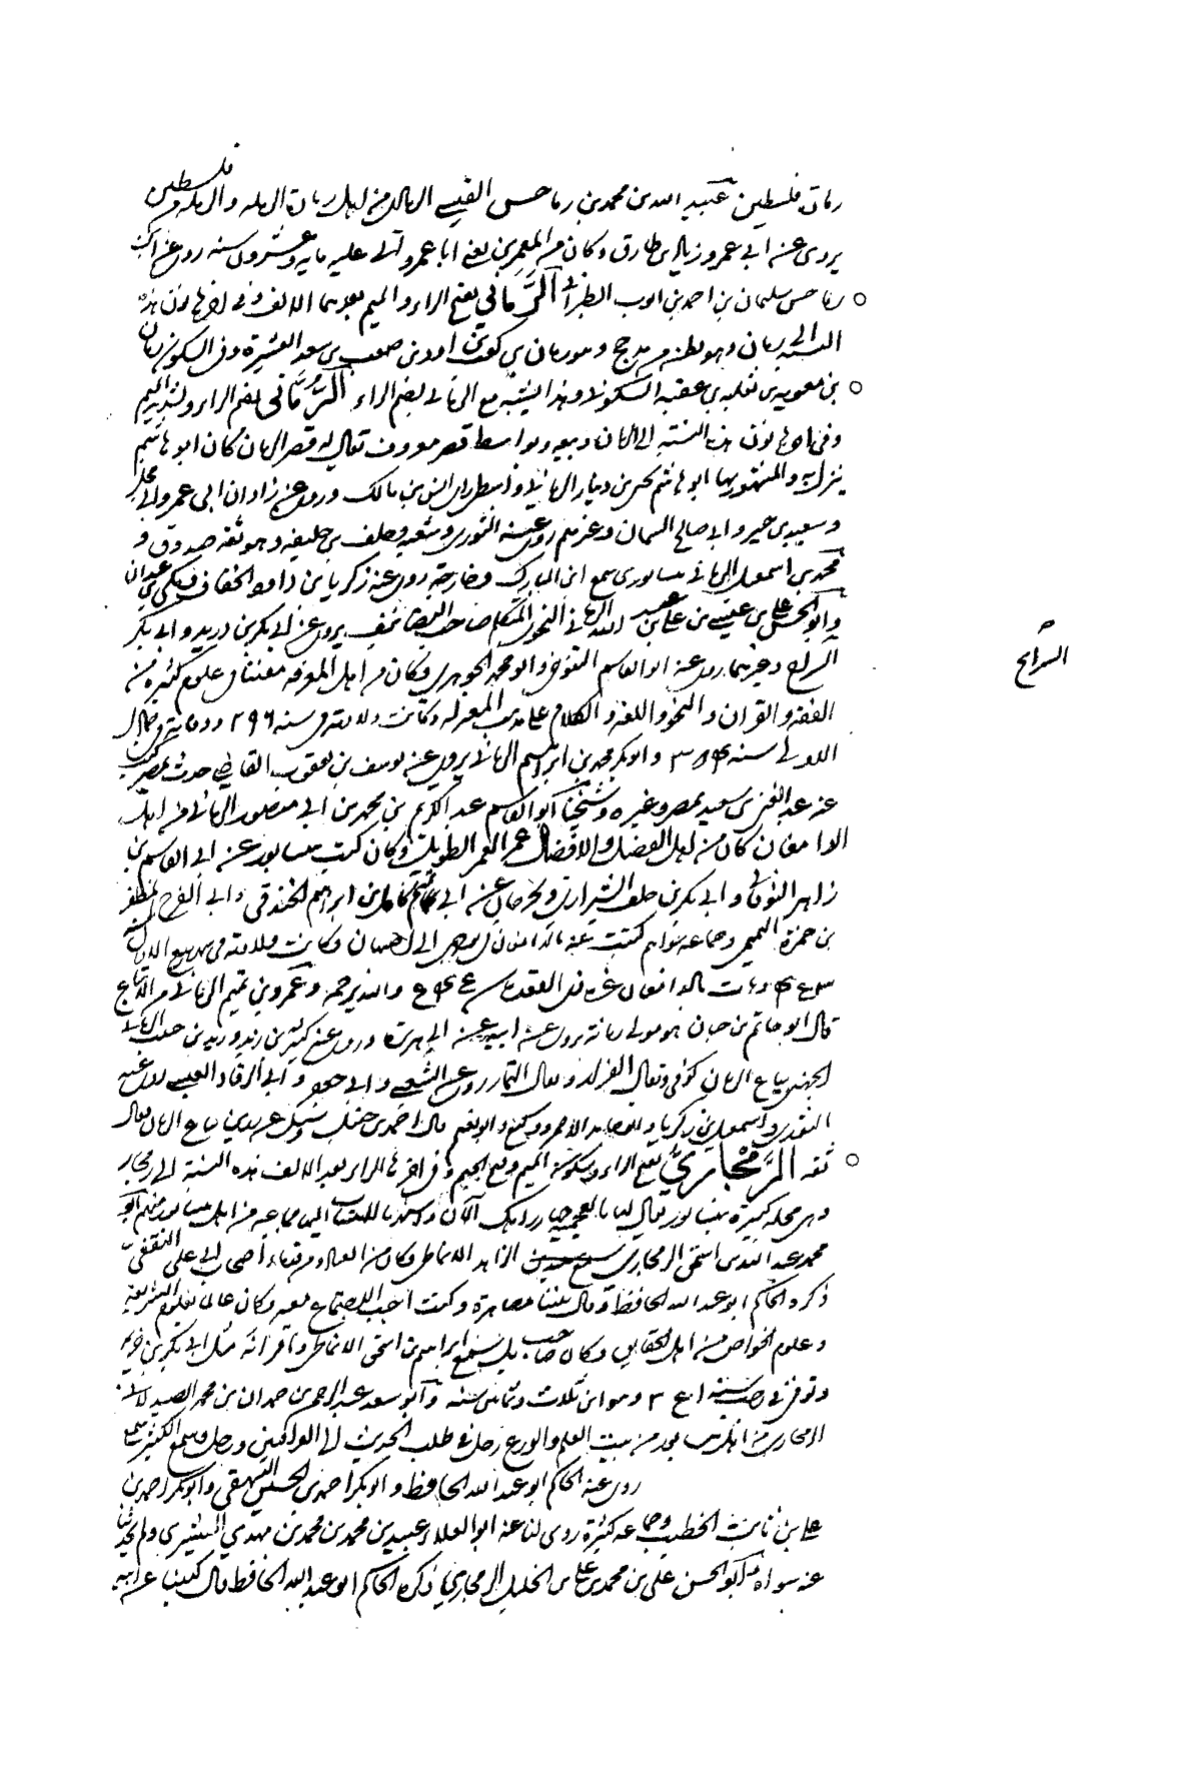 رمادة فلسطين عبيد الله بن محمد بن رماحس القيسي الرمادي من اهل رمادة الرملة والرملة من فلسطين
يروي عن ابي عمرو زياد بن طارق وكان من المعمرين يعني ابا عمرو اتى عليه مايه وعشرون سنه روى عن ابن
رماحس سليمان بن احمد بن ايوب الطبراني الرَّماني بفتح الراء والميم بعدهما الالف وفي اخرها نون هذه
النسبة الى رمان وهو بطن من مذحج وهو رمان بن كعب بن اود بن صعب بن سعد العشيرة وفي السكون رمان
بن معوية بن ثعلبة بن عقبة السكون وهذا يشتبه مع الرماني بضم الراء الرُّمَّاني بضم الراء وتشديد الميم
وفي اخرها نون هذه النسبة الى الرمان وبيعه وبواسط قصر معروف يقال له قصر الرمان كان ابو هاشم
ينزل به والمشهور بها ابو هاشم يحيى بن دينار الرماني واسطي راى انس بن مالك وروى عن زاذان ابي عمر وابي مجلز
وسعيد بن جبير وابي صالح السمان وغيرهم روى عنه الثوري وشعبه وخلف بن خليفه وهو ثقه صدوق و
محمد بن اسمعيل الرماني نيسابوري سمع ابن المبارك وخارجة روى عنه زكريا بن داود الخفاف
وابو الحسن علي بن عيسى بن علي بن عبد الله الرماني النحوي المتكلم صاحب التصانيف يروي عن ابي بكر بن دريد وابي بكر
السراج وغيرهما روى عنه ابو القاسم التنوخي وابو محمد الجوهري وكان من اهل المعرفه مفتنا في علوم كثيره من
السراج
الفقه والقران والنحو واللغه والكلام على مذهب المعتزله وكانت ولادته في سنه ٢٩٦ ووفاته في جمادى
الاولى سنه ٣٨٤ وابو بكر محمد بن ابراهيم الرماني يروي عن يوسف بن يعقوب القاضي حدث بمصر كتب
عنه عبد الغني بن سعيد بمصر وغيره وشيخنا ابو القاسم عبد الكريم بن محمد بن ابي منصور الرماني من اهل
الدامغان كان من اهل الفضل والافضال عمر العمر الطويل وكان كتب بنيسابور عن ابي القاسم بن
زاهر النوقاني وابي بكر بن خلف الشيرازي وبجرجان عن ابي تميم كامل بن ابراهيم الخندقي وابي الفرج المظفر
بن حمزة التميمي وجماعه سواهم كتبت عنه بالدامغان في توجهي الى اصبهان وكانت ولادته في شهر ربيع الاول
ومات بالدامغان غرة ذي القعده والله يرحمه وعمرو بن تميم الرماني من الاتباع
قال ابو حاتم بن حبان هو مولى رمانة يروي عن ابيه عن ابي هريره وروى عنه كثير بن زيد
الجهني بياع الرمان كوفي ويقال الغزال ويقال التمار روى عن الشعبي وابي جعفر وابي الرقاد العبسي روى عنه
الثوري واسمعيل بن زكريا وابو خالد الاحمر ووكيع وابو نعيم قال احمد بن حنبل وسئل عن بياع الرمان فقال
ثقه الرَّمْجَاري بفتح الراء وسكون الميم وفتح الجيم وفي اخرها الراء بعد الالف هذه النسبة الى رمجار
وهي محله كبيرة بنيسابور يقال لها بالعجميه الآن والمشهور بالانتساب اليها جماعه من اهل نيسابور منهم ابو
محمد عبد الله بن اسحق الرمجاري الزاهد الانماطي وكان من العباد ومن قدماء اصحاب ابي علي الثقفي
ذكره الحاكم ابو عبد الله الحافظ وقال بيننا مصاهرة وكنت احب الاجتماع معه وكان عالما بعلوم الشريعة
وعلوم الخواص من اهل الحقايق وكان صاحب سمع ابراهيم بن اسحق الانماطي واقرانه مثل ابي بكر بن خزيمه
وتوفي في رجب سنه ٣٤١ وهو ابن ثلاث وثمانين سنه وابو سعد عبد الرحمن بن حمدان بن محمد
الرمجاري من اهل نيسابور من بيت العلم والورع رحل في طلب الحديث الى العراقين ودخل وسمع الكثير سمع
روى عنه الحاكم ابو عبد الله الحافظ وابو بكر احمد بن الحسين البيهقي وابو بكر احمد بن
علي بن ثابت الخطيب وجماعه كثيرة روى لنا عنه ابو العلاء عبيد بن محمد بن محمد بن مهدي القشيري ولم يحدثنا
عنه سواه وابو الحسن علي بن محمد بن علي بن الخليل الرمجاري ذكره الحاكم ابو عبد الله الحافظ وقال كتبنا عن ابيه